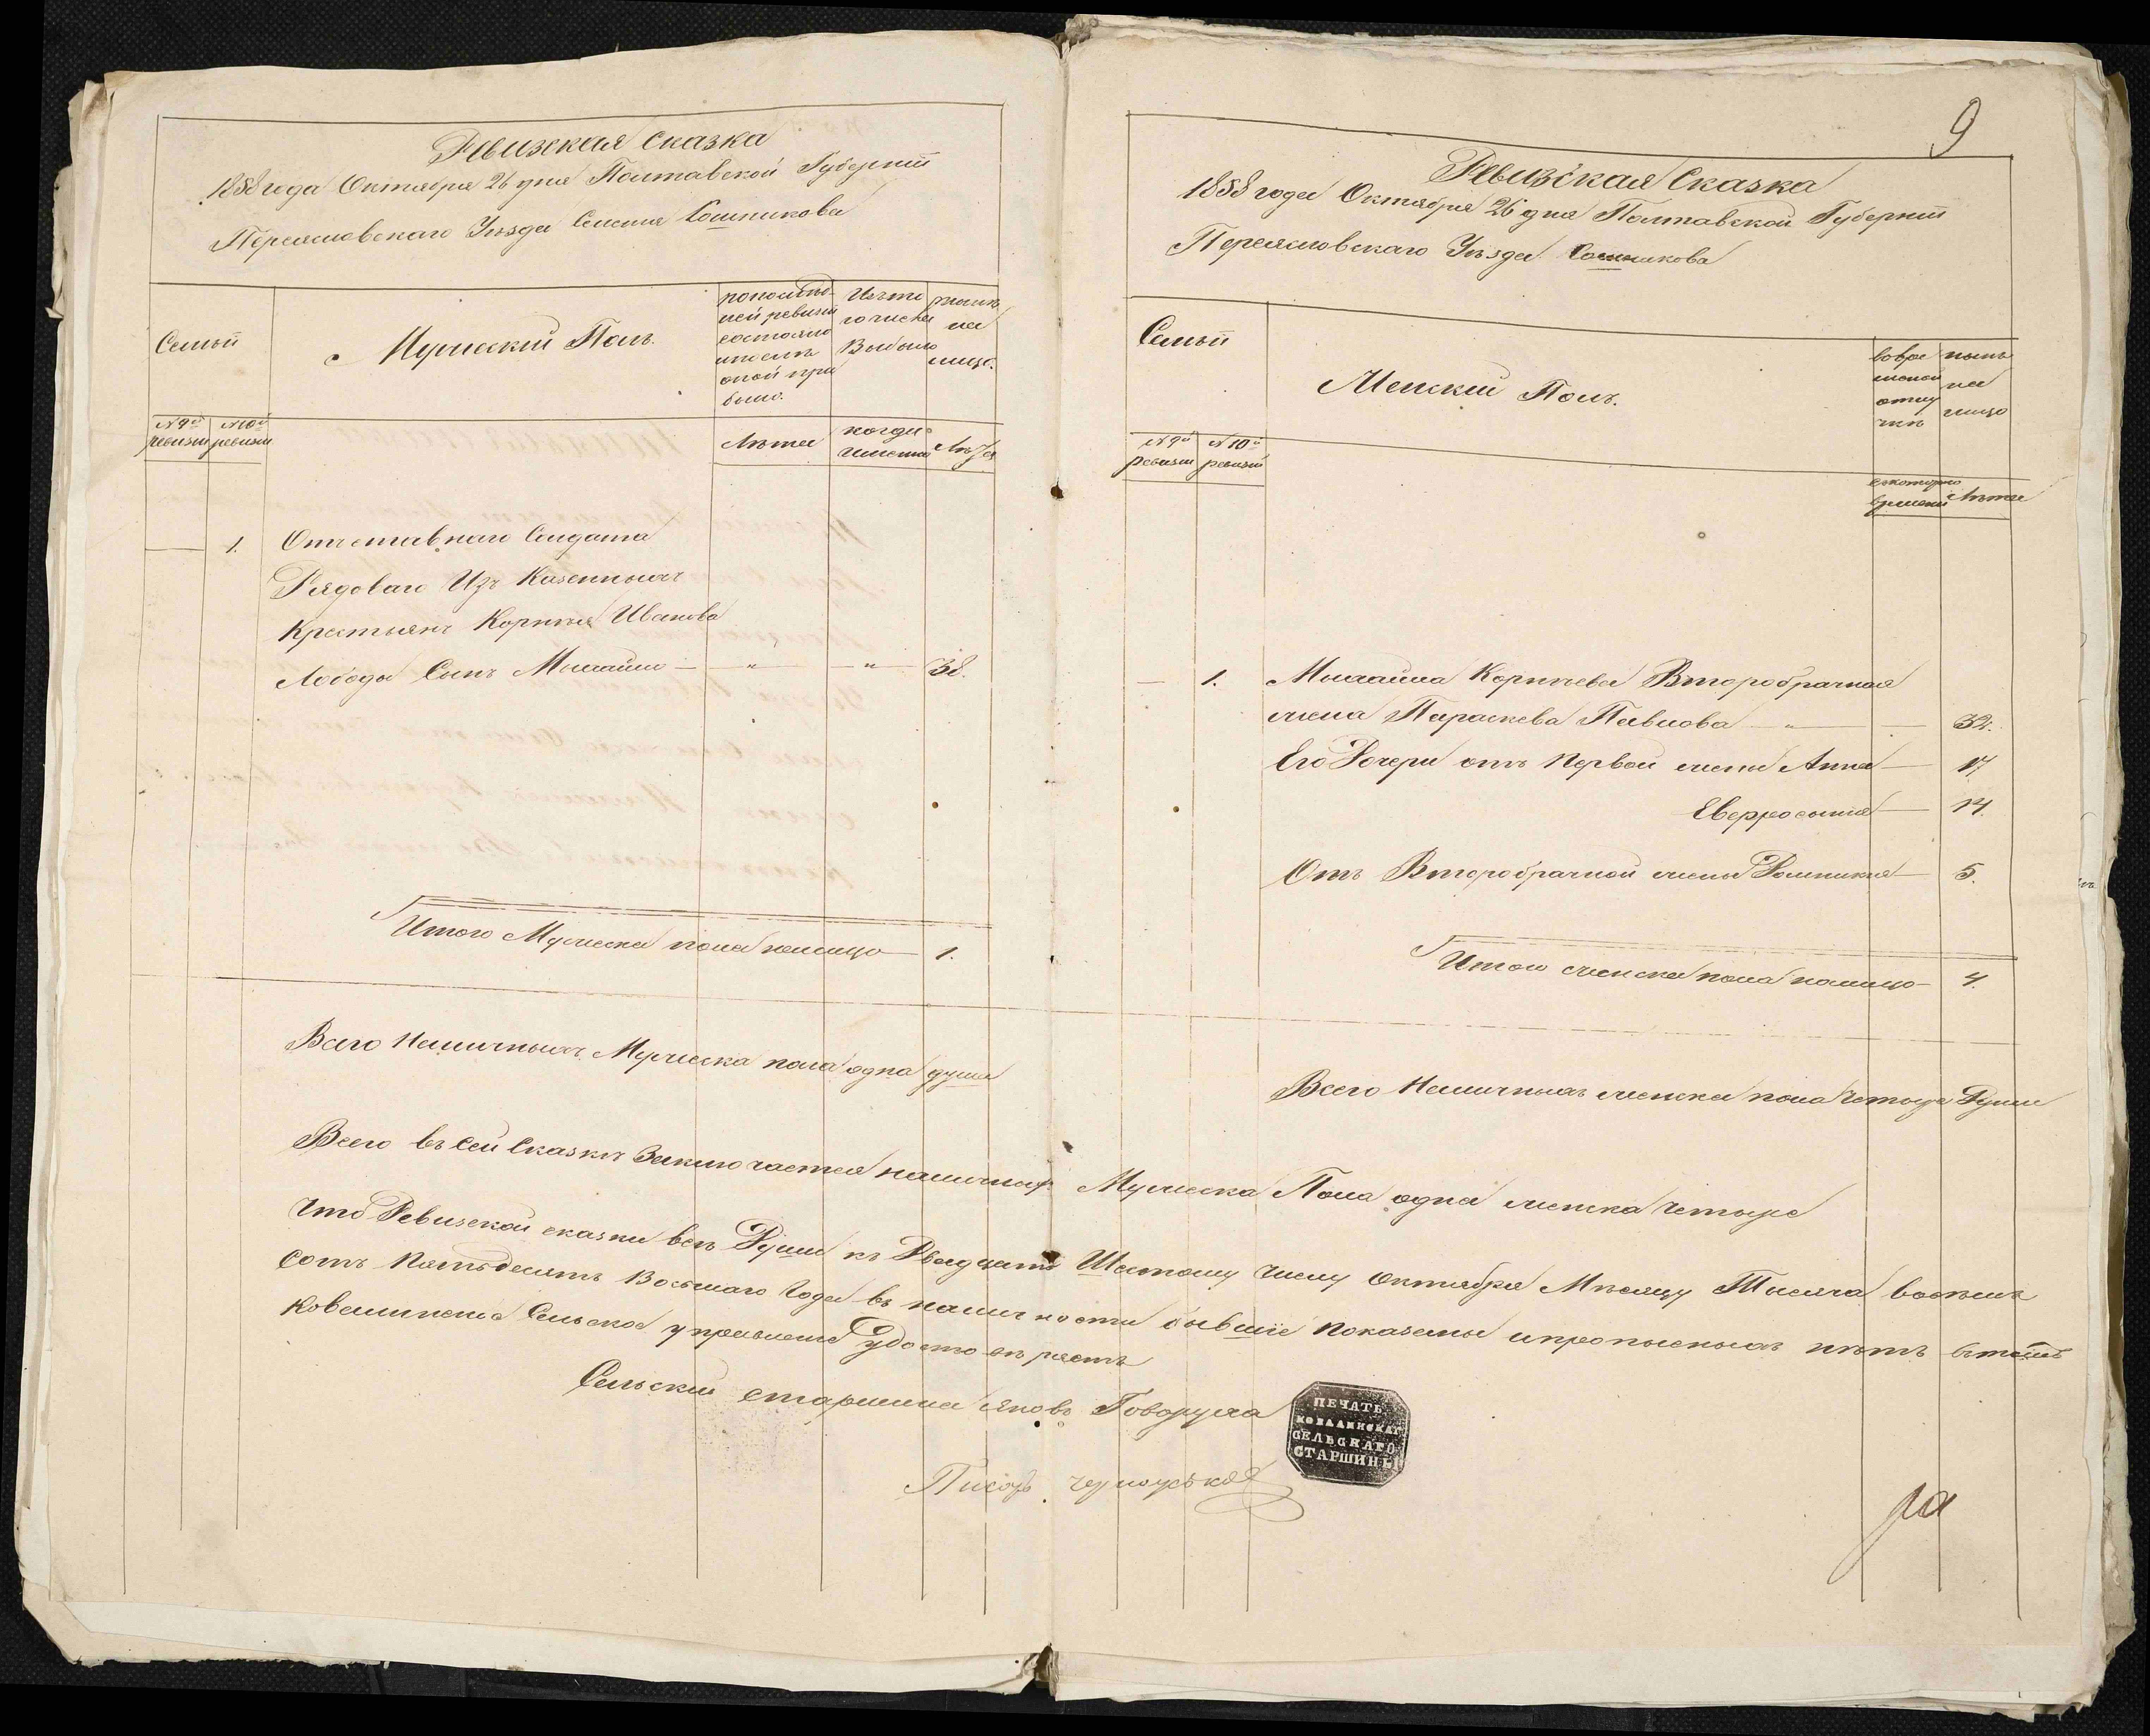 Ревизкая Сказка
1858 года Октября 26 дня Полтавской Губернїи
Переясловскаго Уѣзда Селения Сошникова
Семьи
Мужеский Полъ.
по послѣд-
ней ревизии
состояло
и после
оной при
было.
Изъ то
го числа
Выбыло
нынѣ
на
лицо.
№ 9й
ревизии
№ 10й
ревизии
Лѣта
когда
именно
Лѣта
1. Отъставнаго Солдата
Рядоваго Изъ Казенныхъ
Крестьянъ Корнѣя Иванова
Лободы Сынъ Михайло — " — " — 38.
Итого Мужеска пола налицо — 1.
Всего Наличныхъ Мужеска пола одна душа
9
Ревизская Сказка
1858 года Октября 26 дня Полтавской Губернїи
Переясловскаго Уѣзда Сошникова
Семьи
Женский Полъ.
во вре
менной
отлу
чкѣ
нынѣ
на
лицо
№ 9й
ревизии
№ 10й
ревизии
съ котораго
времени
Лѣта
1. Михайла Корнѣева Второбрачная
жена Параскева Павлова — " — 32.
Его Дочери отъ Первой жены Анна — 17
Евфросиния — 14.
Отъ Второбрачной жены Домникия — 5.
Итого женска пола налицо — 4.
Всего Наличныхъ женска пола Четыре Души
Всего въ сей Сказкѣ Заключается наличныхъ Мужеска Пола одна женска четыре
Что Ревизской сказки всѣ Души къ Двадцать Шестому числу Октября Мѣсяцу Тысяча восемъ
сотъ Пятьдесятъ Восьмаго Года въ наличности бывшїе показаны и прописныхъ нѣтъ въ томъ
Ковалинское Сельское управление Удостовѣряетъ
Сельский старшина Яковъ Говоруха
ПЕЧАТЬ
КОВАЛИНСКАГ
СЕЛЬСКАГО
СТАРШИНЫ
Писарь